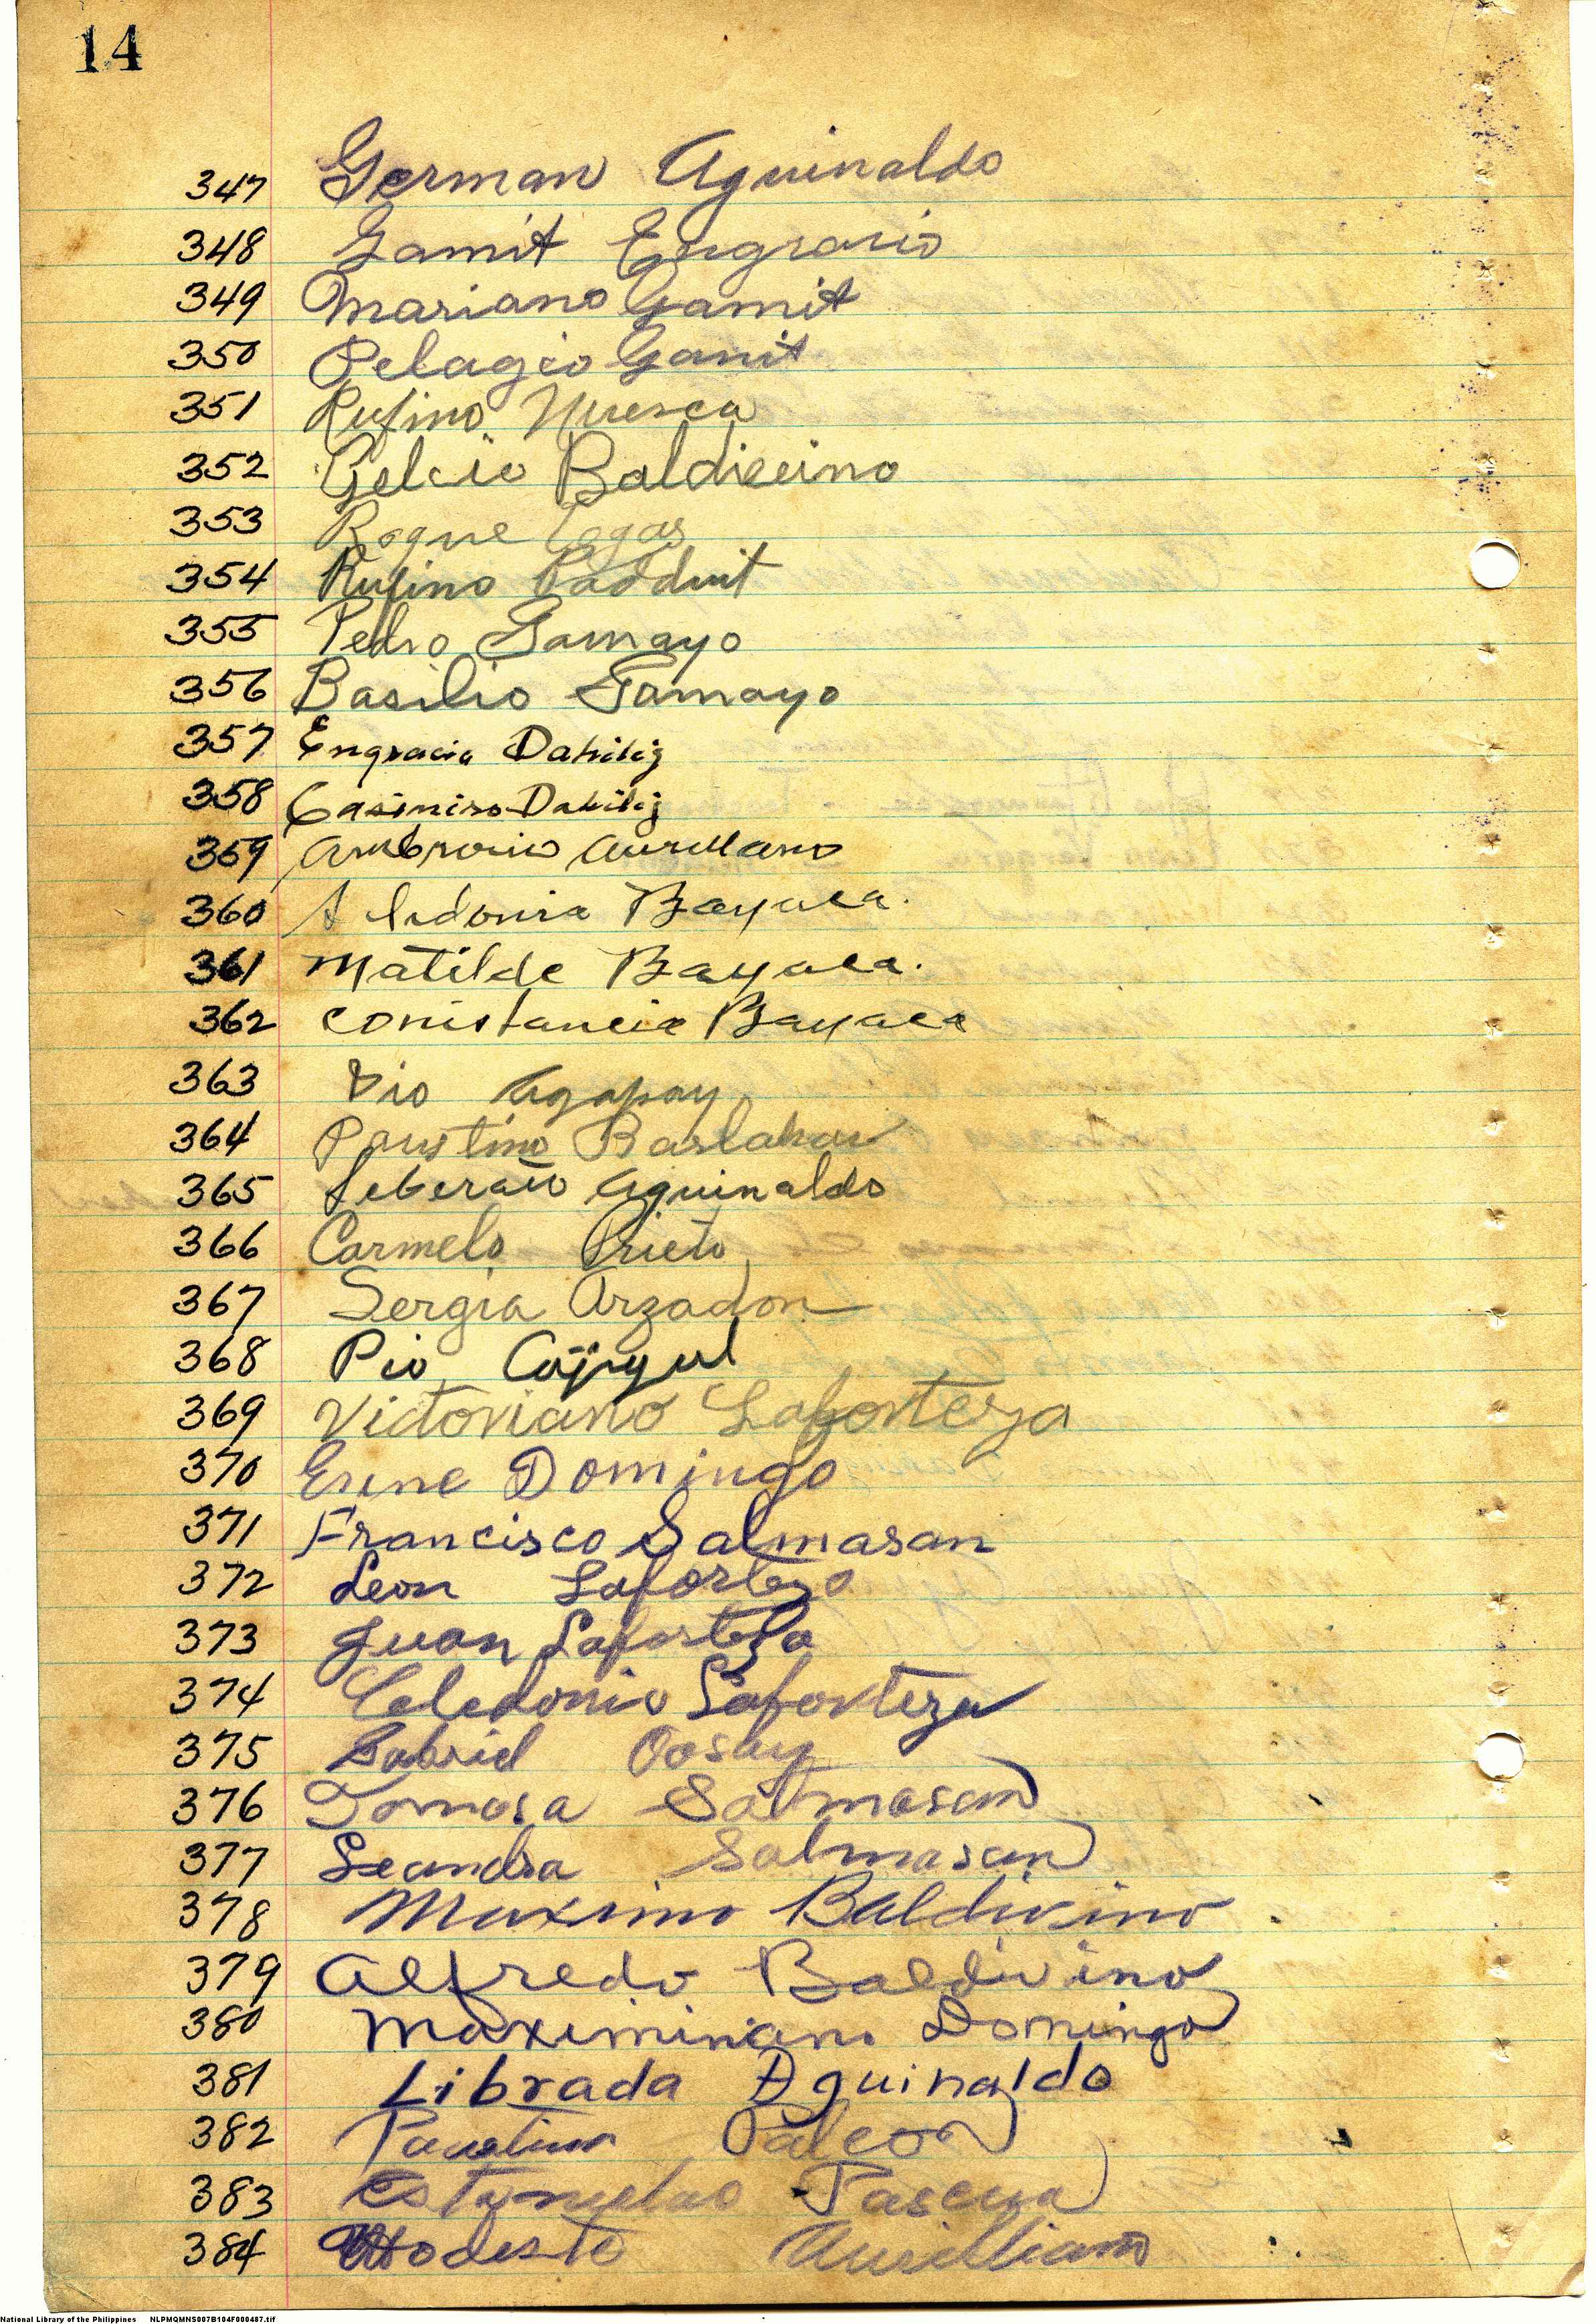 14
347 German Aguinaldo
348 Gamit Engracio
349 Mariano Gamit
350 Pelagio Gamit
351 Rufino Nuesca
352 Baldivino
353 Roque Togas
354 Rufino Padduit
355 Pedro Gamayo
356 Basilio Tamayo
357 Engracia Dahilig
358 Casimiro Dahilig
359 Ambrosio Aurellano
360 Bayaca.
361 Matilde Bayaca.
362 Constancia Bayaca
363 Pio Agapay
364 Faustino
365 Liberato Aguinaldo
366 Carmelo Prieto
367 Sergia Arzadon
368 Pio
369 Victoriano Laforteza
370 Erene Domingo
371 Francisco Salmasan
372 Leon Laforteza
373 Juan Laforteza
374 Celedonio Laforteza
375 Gabriel Oosay
376 Tomasa Salmasan
377 Leandra Salmasan
378 Maximo Baldivino
379 Alfredo Baldivino
380 Maximiniano Domingo
381 Librada Aguinaldo
382 Faustino
383 Pascua
384 Modesto Aurelliano
National Library of the Philippines NLPMQMNS007B104F000487.tif